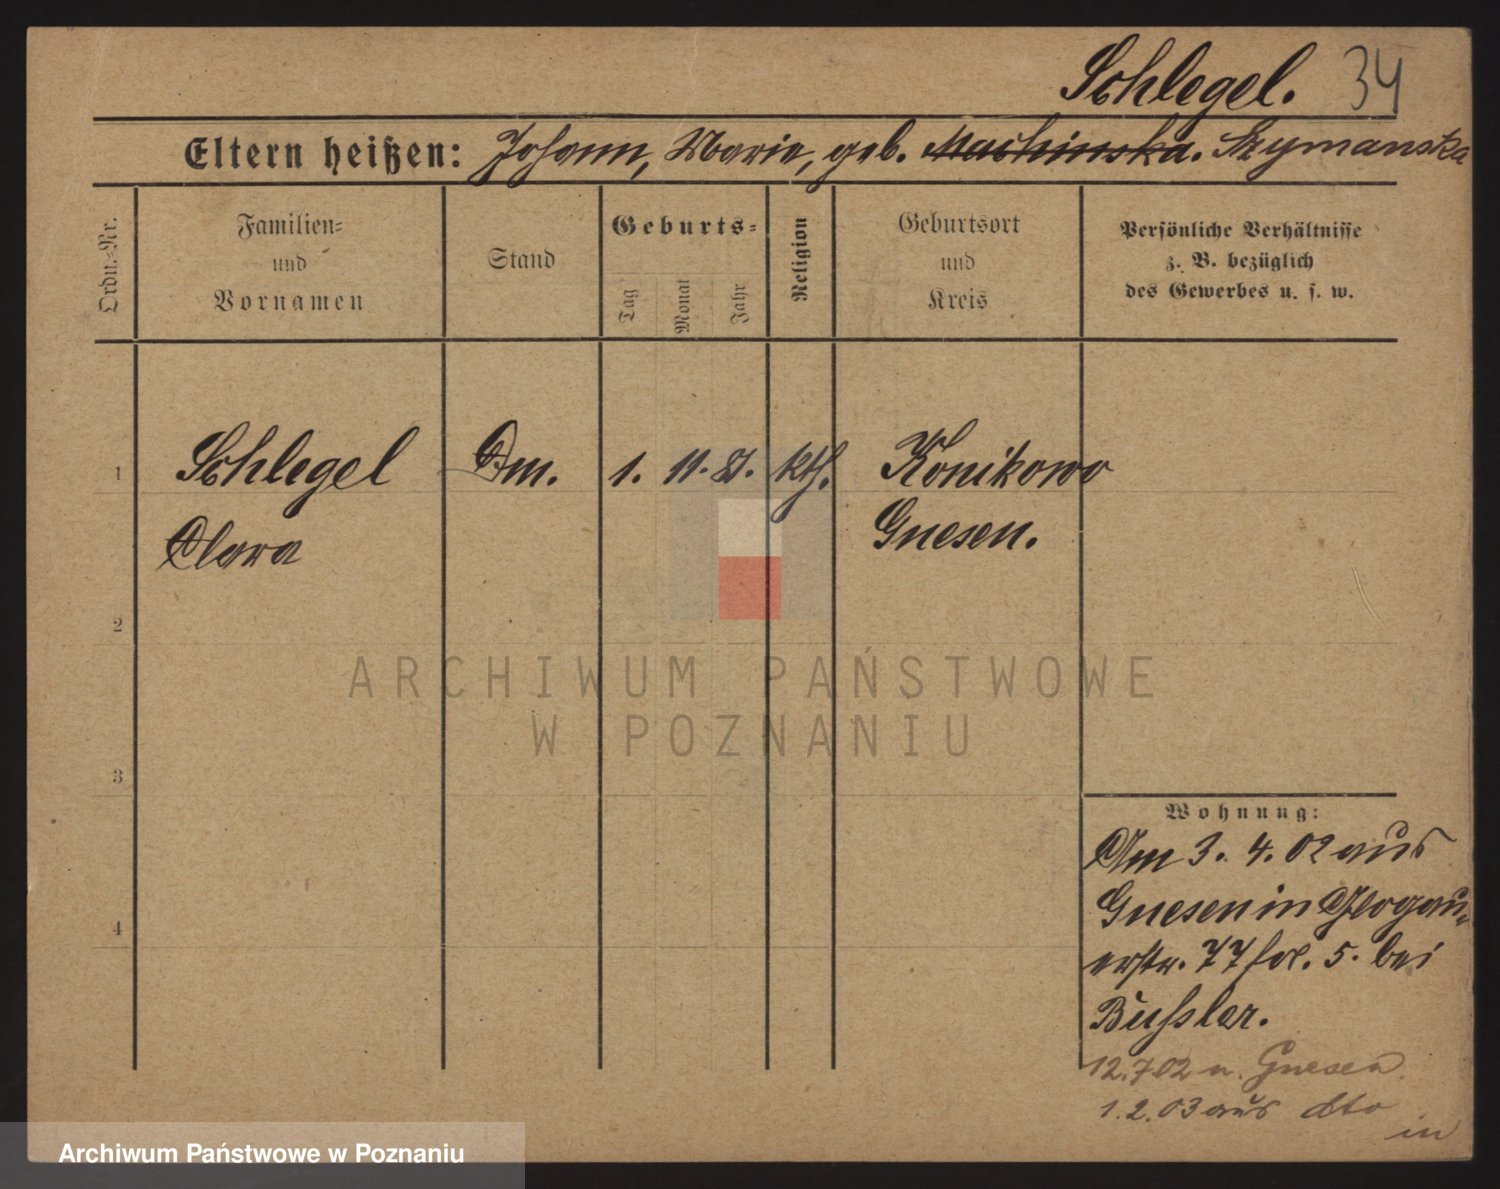 Schlegel. 34
Eltern heißen: Johann, Marie, geb. Machinska. Szymanska
Ordn.=Nr.
Familien=
und
Vornamen
Stand
Geburts=
Tag
Monat
Jahr
Religion
Geburtsort
und
Kreis
Persönliche Verhältnisse
z. B. bezüglich
des Gewerbes u. s. w.
1 Schlegel Dm. 1. 11. 81. kth. Konikowo
Clara Gnesen.
2
3
4
ARCHIWUM PAŃSTWOWE
W POZNANIU
Wohnung:
Am 3. 4. 02 aus
Gnesen in Glogau-
erstr. 77 bei
Bußler.
12.7.02 n. Gnesen.
1.2.03 aus dto
in
Archiwum Państwowe w Poznaniu